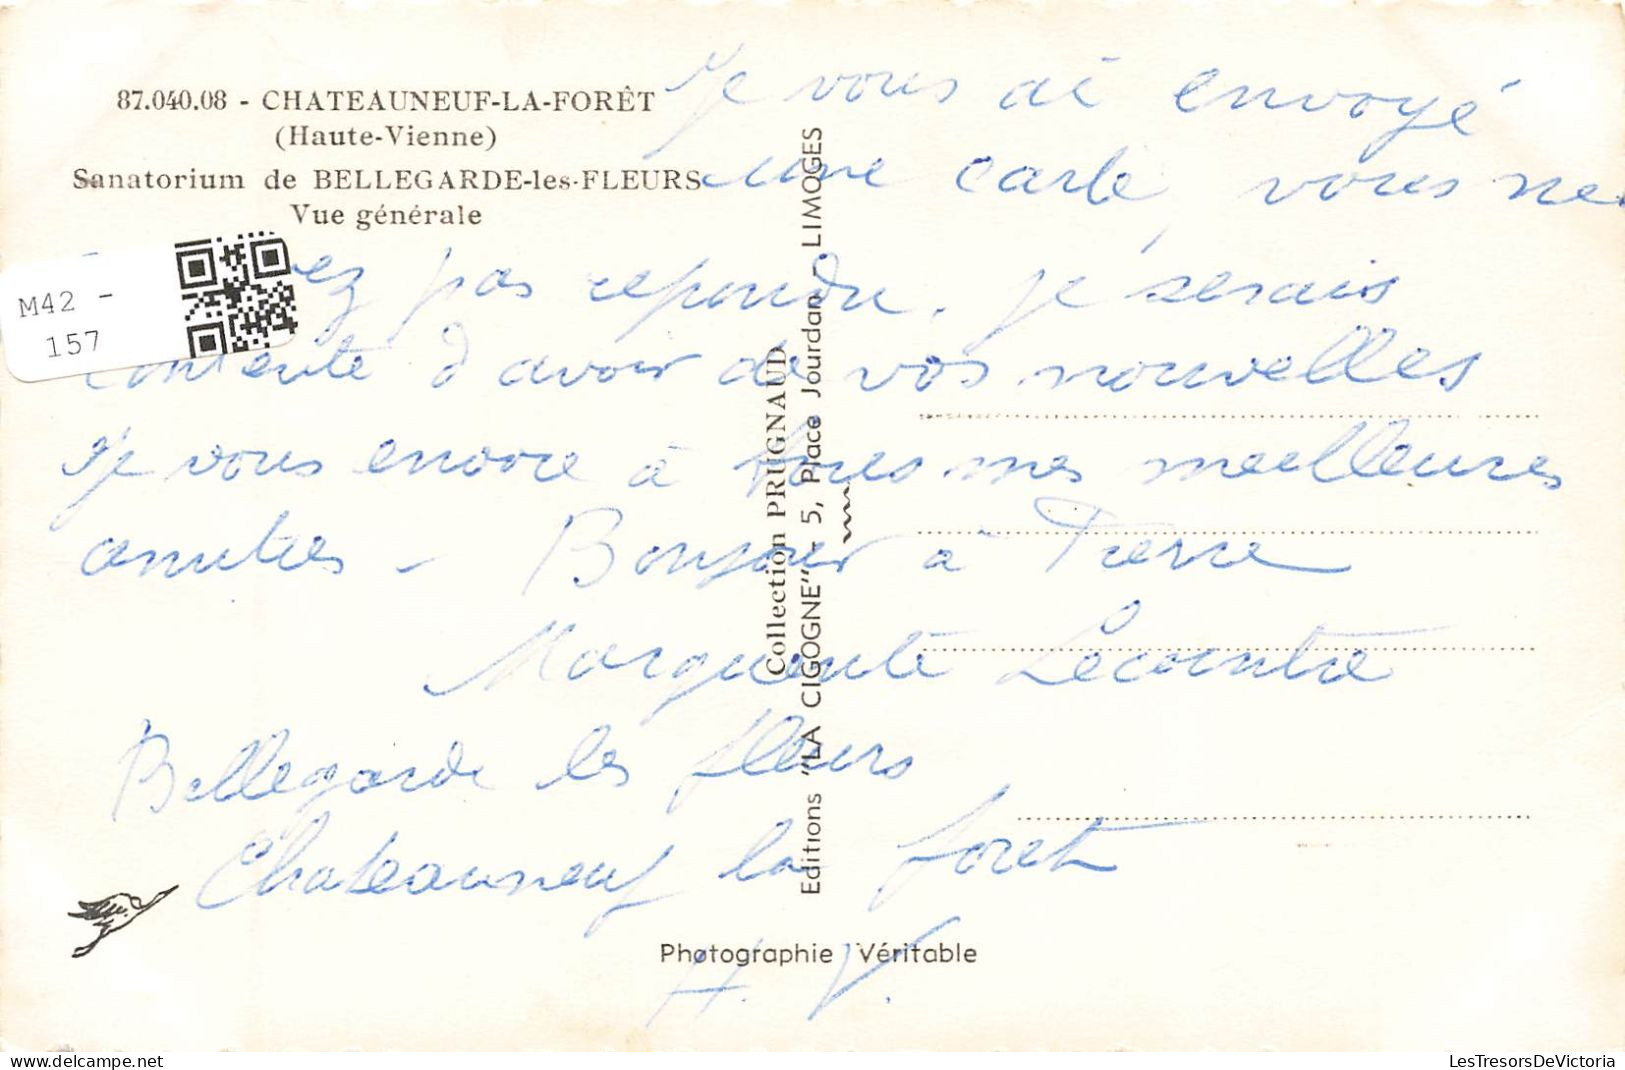 87.040.08 - CHATEAUNEUF-LA-FORÊT
(Haute-Vienne)
Sanatorium de BELLEGARDE-les-FLEURS
Vue générale
M42 -
157
Je vous ai envoyé
une carte, vous ne
pas repondu. je serais
contente d'avoir de vos nouvelles
Je vous envoie à tous mes meilleures
amities - Bonjour à Pierre
Marguerite Lecointre
Bellegarde les fleurs
Chateauneuf la foret
H. V.
Collection PRUGNAUD
Editions "LA CIGOGNE" - 5, Place Jourdan - LIMOGES
Photographie Véritable
LesTresorsDeVictoria